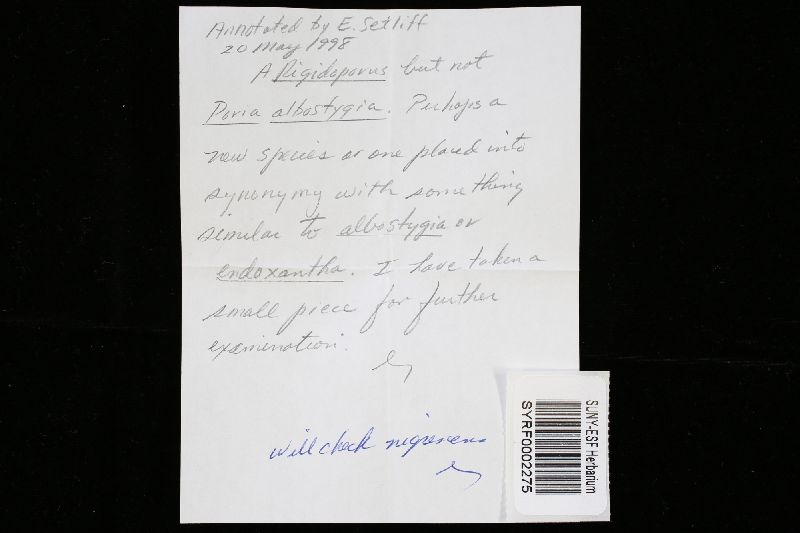 Annotated by E. Setliff
20 May 1998
A Rigidoporus but not
Poria albostygia. Perhaps a
new species or one placed into
synonymy with something
similar to albostygia or
endoxantha. I have taken a
small piece for further
examination.
will check nigrescens
SUNY-ESF Herbarium
SYRF0002275